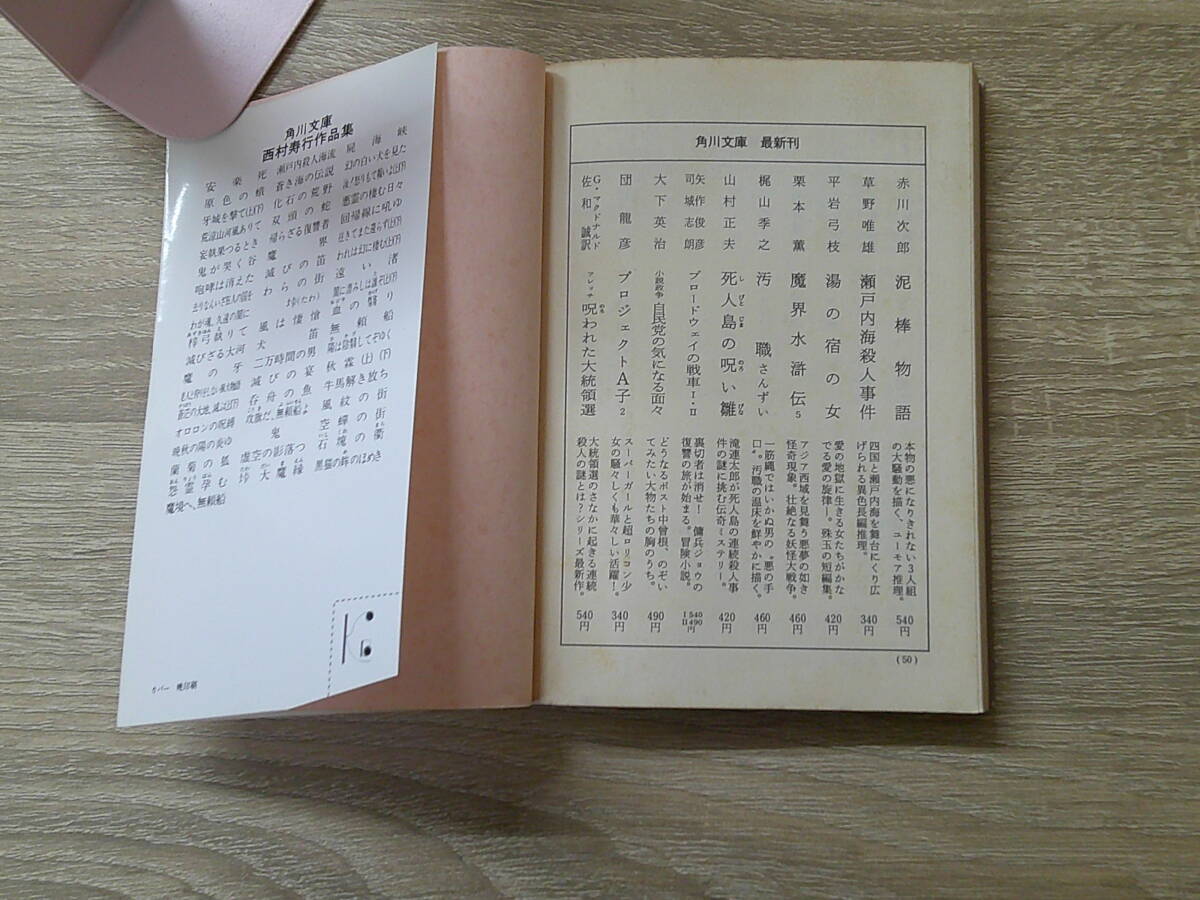 角川文庫
西村寿行作品集
安楽死 瀬戸内殺人海流 屍海峡
原色の蛾 蒼き海の伝説 幻の白い犬を見た
牙城を撃て(上)(下) 化石の荒野
荒涼山河風ありて 双頭の蛇 悪霊の棲む日々
妄執果つるとき 帰らざる復讐者 回帰線に吼ゆ
鬼が哭く谷 魔界 往きてまた還らず(上)(下)
咆哮は消えた 滅びの笛 われは幻に棲む(上)(下)
わらの街 遠い渚
わが魂、久遠の闇に
梓弓執りて 風は悽愴 血の翳り
滅びざる大河 犬笛 無頼船
魔の牙 二万時間の男 陽は陰翳してぞゆく
滅びの宴 秋霖(上)(下)
蒼茫の大地、滅ぶ(上)(下) 呑舟の魚 牛馬解き放ち
オロロンの呪縛 風紋の街
晩秋の陽の炎ゆ 鬼 空蟬の街
蘭菊の狐 虚空の影落つ 石塊の衢
怨霊孕む 大魔縁 黒猫の眸のほめき
魔境へ、無頼船
カバー 暁印刷
角川文庫 最新刊
赤川次郎 泥棒物語 本物の悪になりきれない3人組の大騒動を描く、ユーモア推理。 540円
草野唯雄 瀬戸内海殺人事件 四国と瀬戸内海を舞台にくり広げられる異色長編推理。 340円
平岩弓枝 湯の宿の女 愛の地獄に生きる女たちがかなでる愛の旋律。殊玉の短編集。 420円
栗本薫 魔界水滸伝5 アジア西域を見舞う悪夢の如き怪奇現象。壮絶なる妖怪大戦争。 460円
梶山季之 汚職さんずい 一筋縄ではいかぬ男の〝悪の手口〟。汚職の温床を鮮やかに描く。 460円
山村正夫 死人島の呪い雛 滝連太郎が死人島の連続殺人事件の謎に挑む伝奇ミステリー。 420円
矢作俊彦 司城志朗 ブロードウェイの戦車I・II 裏切者は消せ! 傭兵ジョウの復讐の旅が始まる。冒険小説。 I 540 II 490円
大下英治 小説政争 自民党の気になる面々 どうなるポスト中曾根、のぞいてみたい大物たちの胸のうち。 490円
団龍彦 プロジェクトA子2 スーパーガールと超ロリコン少女の騒々しくも華々しい活躍! 340円
G・マクドナルド 佐和誠訳 フレッチ 呪われた大統領選 大統領選のさなかに起きる連続殺人の謎とは?シリーズ最新作。 540円
(50)